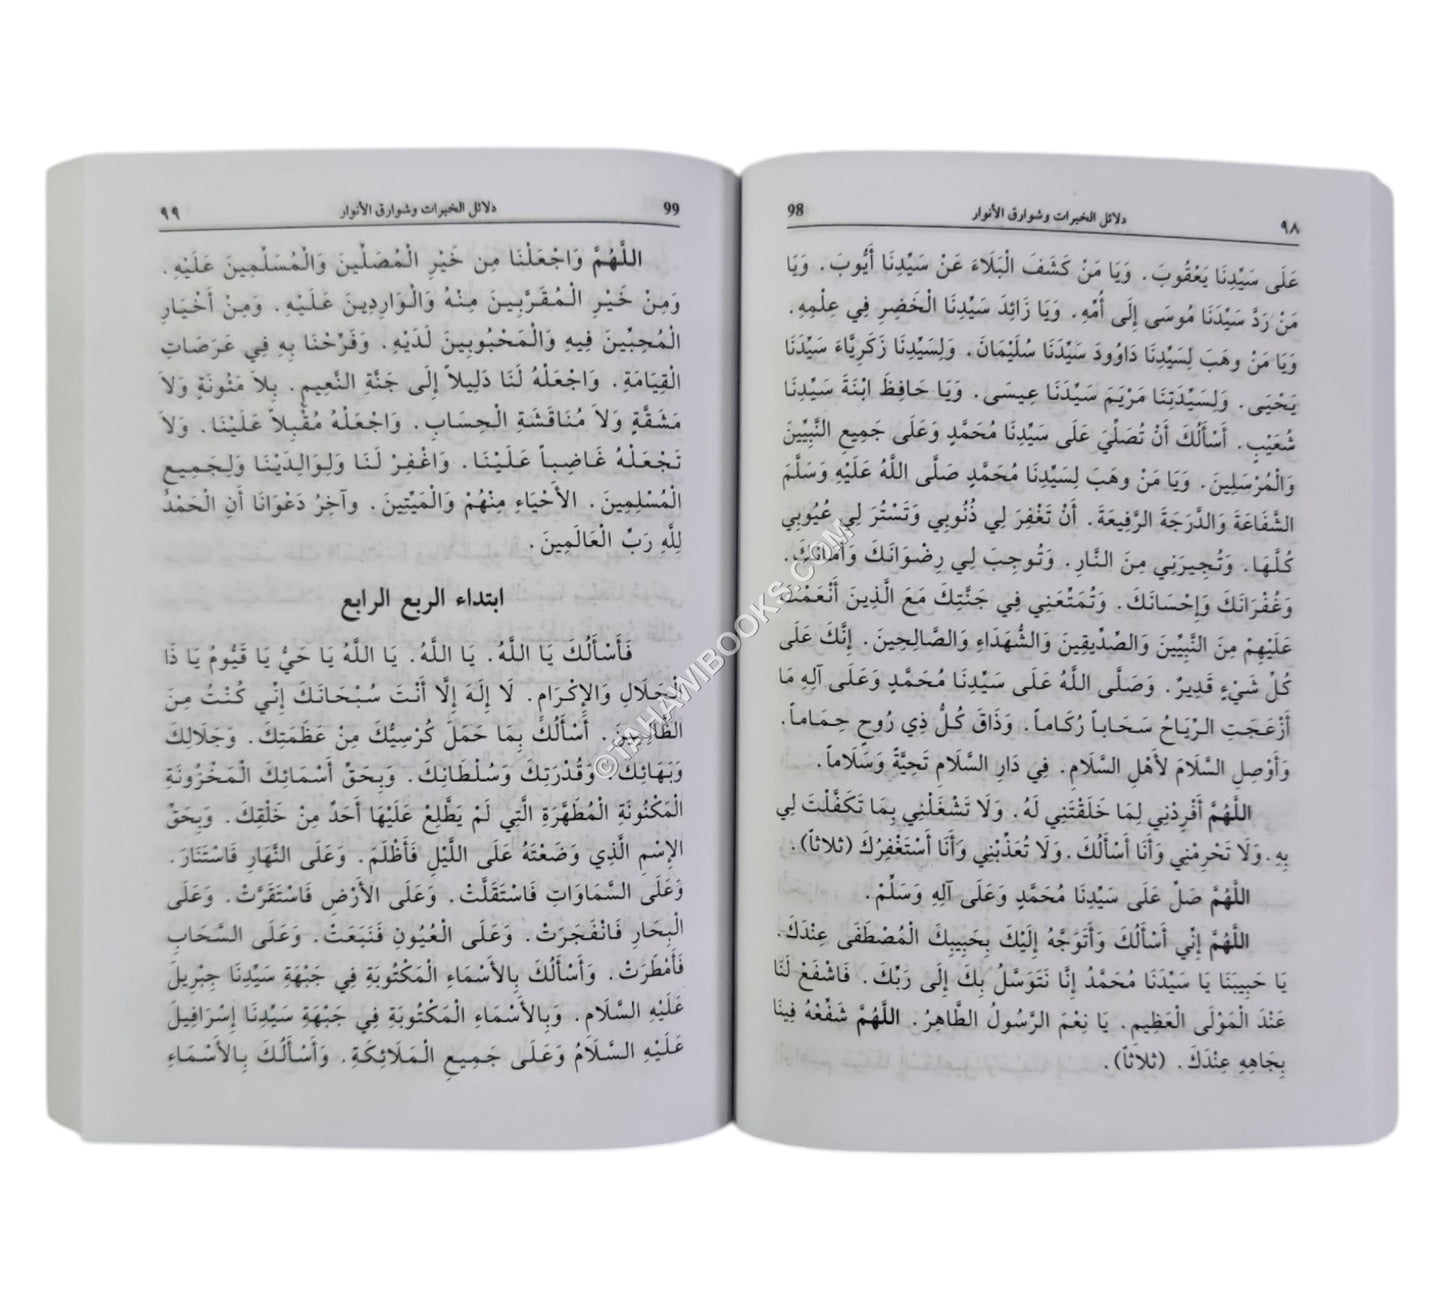 ٩٨ دلائل الخيرات وشوارق الأنوار 98
عَلَى سَيِّدِنَا يَعْقُوبَ. وَيَا مَنْ كَشَفَ الْبَلَاءَ عَنْ سَيِّدِنَا أَيُّوبَ. وَيَا
مَنْ رَدَّ سَيِّدَنَا مُوسَى إِلَى أُمِّهِ. وَيَا زَائِدَ سَيِّدِنَا الْخَضِرِ فِي عِلْمِهِ.
وَيَا مَنْ وهَبَ لِسَيِّدِنَا دَاوُودَ سَيِّدَنَا سُلَيْمَانَ. وَلِسَيِّدِنَا زَكَرِيَّاءَ سَيِّدَنَا
يَحْيَى. وَلِسَيِّدَتِنَا مَرْيَمَ سَيِّدَنَا عِيسَى. وَيَا حَافِظَ ابْنَةَ سَيِّدِنَا
شُعَيْبٍ. أَسْأَلُكَ أَنْ تُصَلِّيَ عَلَى سَيِّدِنَا مُحَمَّدٍ وَعَلَى جَمِيعِ النَّبِيِّينَ
وَالْمُرْسَلِينَ. وَيَا مَنْ وهَبَ لِسَيِّدِنَا مُحَمَّدٍ صَلَّى اللَّهُ عَلَيْهِ وَسَلَّمَ
الشَّفَاعَةَ وَالدَّرَجَةَ الرَّفِيعَةَ. أَنْ تَغْفِرَ لِي ذُنُوبِي وَتَسْتُرَ لِي عُيُوبِي
كُلَّهَا. وَتُجِيرَنِي مِنَ النَّارِ. وَتُوجِبَ لِي رِضْوَانَكَ وَأَمَانَكَ.
وَغُفْرَانَكَ وَإِحْسَانَكَ. وَتُمَتِّعَنِي فِي جَنَّتِكَ مَعَ الَّذِينَ أَنْعَمْتَ
عَلَيْهِمْ مِنَ النَّبِيِّينَ وَالصِّدِّيقِينَ وَالشُّهَدَاءِ وَالصَّالِحِينَ. إِنَّكَ عَلَى
كُلِّ شَيْءٍ قَدِيرٌ. وَصَلَّى اللَّهُ عَلَى سَيِّدِنَا مُحَمَّدٍ وَعَلَى آلِهِ مَا
أَزْعَجَتِ الرِّيَاحُ سَحَاباً رُكَاماً. وَذَاقَ كُلُّ ذِي رُوحٍ حِمَاماً.
وَأَوْصِلِ السَّلَامَ لأَهْلِ السَّلَامِ. فِي دَارِ السَّلَامِ تَحِيَّةً وَسَلَاماً.
اللَّهُمَّ أَفْرِدْنِي لِمَا خَلَقْتَنِي لَهُ. وَلَا تَشْغَلْنِي بِمَا تَكَفَّلْتَ لِي
بِهِ. وَلَا تَحْرِمْنِي وَأَنَا أَسْأَلُكَ. وَلَا تُعَذِّبْنِي وَأَنَا أَسْتَغْفِرُكَ (ثلاثاً).
اللَّهُمَّ صَلِّ عَلَى سَيِّدِنَا مُحَمَّدٍ وَعَلَى آلِهِ وَسَلِّمْ.
اللَّهُمَّ إِنِّي أَسْأَلُكَ وَأَتَوَجَّهُ إِلَيْكَ بِحَبِيبِكَ الْمُصْطَفَى عِنْدَكَ.
يَا حَبِيبَنَا يَا سَيِّدَنَا مُحَمَّدُ إِنَّا نَتَوَسَّلُ بِكَ إِلَى رَبِّكَ. فَاشْفَعْ لَنَا
عِنْدَ الْمَوْلَى الْعَظِيمِ. يَا نِعْمَ الرَّسُولُ الطَّاهِرُ. اللَّهُمَّ شَفِّعْهُ فِينَا
بِجَاهِهِ عِنْدَكَ. (ثلاثاً).
99 دلائل الخيرات وشوارق الأنوار ٩٩
اللَّهُمَّ وَاجْعَلْنَا مِن خَيْرِ الْمُصَلِّينَ وَالْمُسَلِّمِينَ عَلَيْهِ.
وَمِنْ خَيْرِ الْمُقَرَّبِينَ مِنْهُ وَالْوَارِدِينَ عَلَيْهِ. وَمِنْ أَخْيَارِ
الْمُحِبِّينَ فِيهِ وَالْمَحْبُوبِينَ لَدَيْهِ. وَفَرِّحْنَا بِهِ فِي عَرَصَاتِ
الْقِيَامَةِ. وَاجْعَلْهُ لَنَا دَلِيلاً إِلَى جَنَّةِ النَّعِيمِ. بِلاَ مَئُونَةٍ وَلاَ
مَشَقَّةٍ وَلاَ مُنَاقَشَةِ الْحِسَابِ. وَاجْعَلْهُ مُقْبِلاً عَلَيْنَا. وَلاَ
تَجْعَلْهُ غَاضِباً عَلَيْنَا. وَاغْفِرْ لَنَا وَلِوَالِدَيْنَا وَلِجَمِيعِ
الْمُسْلِمِينَ. الأَحْيَاءِ مِنْهُمْ وَالْمَيِّتِينَ. وَآخِرُ دَعْوَانَا أَنِ الْحَمْدُ
لِلَّهِ رَبِّ الْعَالَمِينَ.
ابتداء الربع الرابع
فَأَسْأَلُكَ يَا اللَّهُ. يَا اللَّهُ. يَا اللَّهُ يَا حَيُّ يَا قَيُّومُ يَا ذَا
الْجَلَالِ وَالإِكْرَامِ. لَا إِلَهَ إِلَّا أَنْتَ سُبْحَانَكَ إِنِّي كُنْتُ مِنَ
الظَّالِمِينَ. أَسْأَلُكَ بِمَا حَمَلَ كُرْسِيُّكَ مِنْ عَظَمَتِكَ. وَجَلَالِكَ
وَبَهَائِكَ. وَقُدْرَتِكَ وَسُلْطَانِكَ. وَبِحَقِّ أَسْمَائِكَ الْمَخْزُونَةِ
الْمَكْنُونَةِ الْمُطَهَّرَةِ الَّتِي لَمْ يَطَّلِعْ عَلَيْهَا أَحَدٌ مِنْ خَلْقِكَ. وَبِحَقِّ
الإِسْمِ الَّذِي وَضَعْتَهُ عَلَى اللَّيْلِ فَأَظْلَمَ. وَعَلَى النَّهَارِ فَاسْتَنَارَ.
وَعَلَى السَّمَاوَاتِ فَاسْتَقَلَّتْ. وَعَلَى الأَرْضِ فَاسْتَقَرَّتْ. وَعَلَى
الْبِحَارِ فَانْفَجَرَتْ. وَعَلَى الْعُيُونِ فَنَبَعَتْ. وَعَلَى السَّحَابِ
فَأَمْطَرَتْ. وَأَسْأَلُكَ بِالأَسْمَاءِ الْمَكْتُوبَةِ فِي جَبْهَةِ سَيِّدِنَا جِبْرِيلَ
عَلَيْهِ السَّلَام. وَبِالأَسْمَاءِ الْمَكْتُوبَةِ فِي جَبْهَةِ سَيِّدِنَا إِسْرَافِيلَ
عَلَيْهِ السَّلَامُ وَعَلَى جَمِيعِ الْمَلَائِكَةِ. وَأَسْأَلُكَ بِالأَسْمَاءِ
©TAHAWIBOOKS.COM